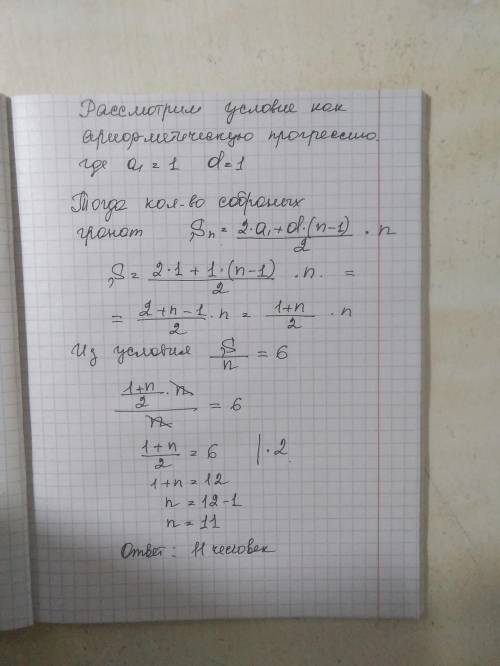 Рассмотрим условие как
арифметическую прогрессию.
где a₁ = 1 d=1
Тогда кол-во собраных
гранат Sₙ = (2·a₁+d·(n-1))/2 · n
S = (2·1 + 1·(n-1))/2 · n. =
= (2+n-1)/2 · n = (1+n)/2 · n
Из условия S/n = 6
((1+n)/2 · n)/n = 6
(1+n)/2 = 6 |·2
1+n = 12
n = 12-1
n = 11
Ответ: 11 человек